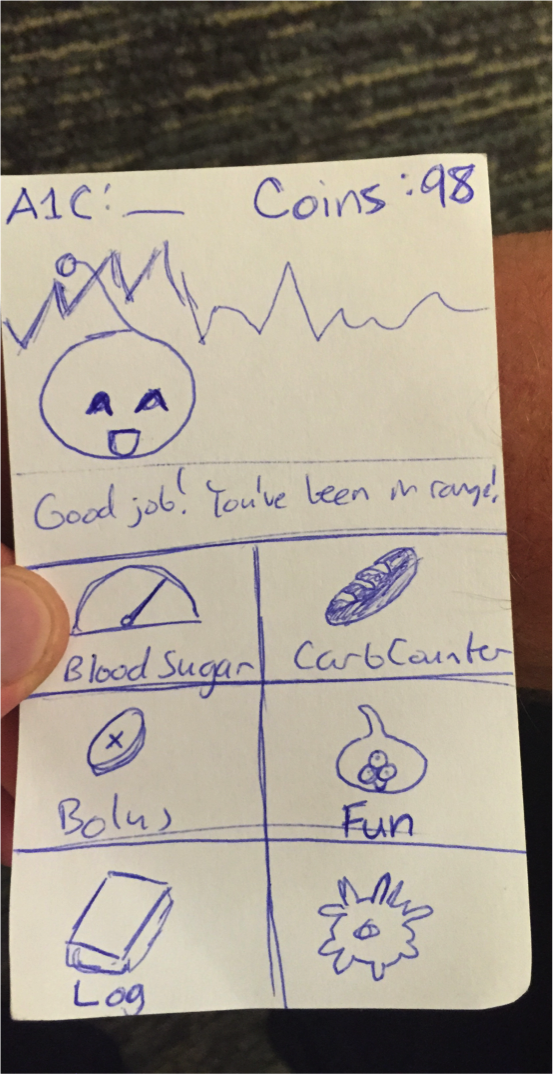 A1C: __ Coins: 98
Good job! You've been in range!
Blood Sugar CarbCounter
x
Bolus Fun
Log